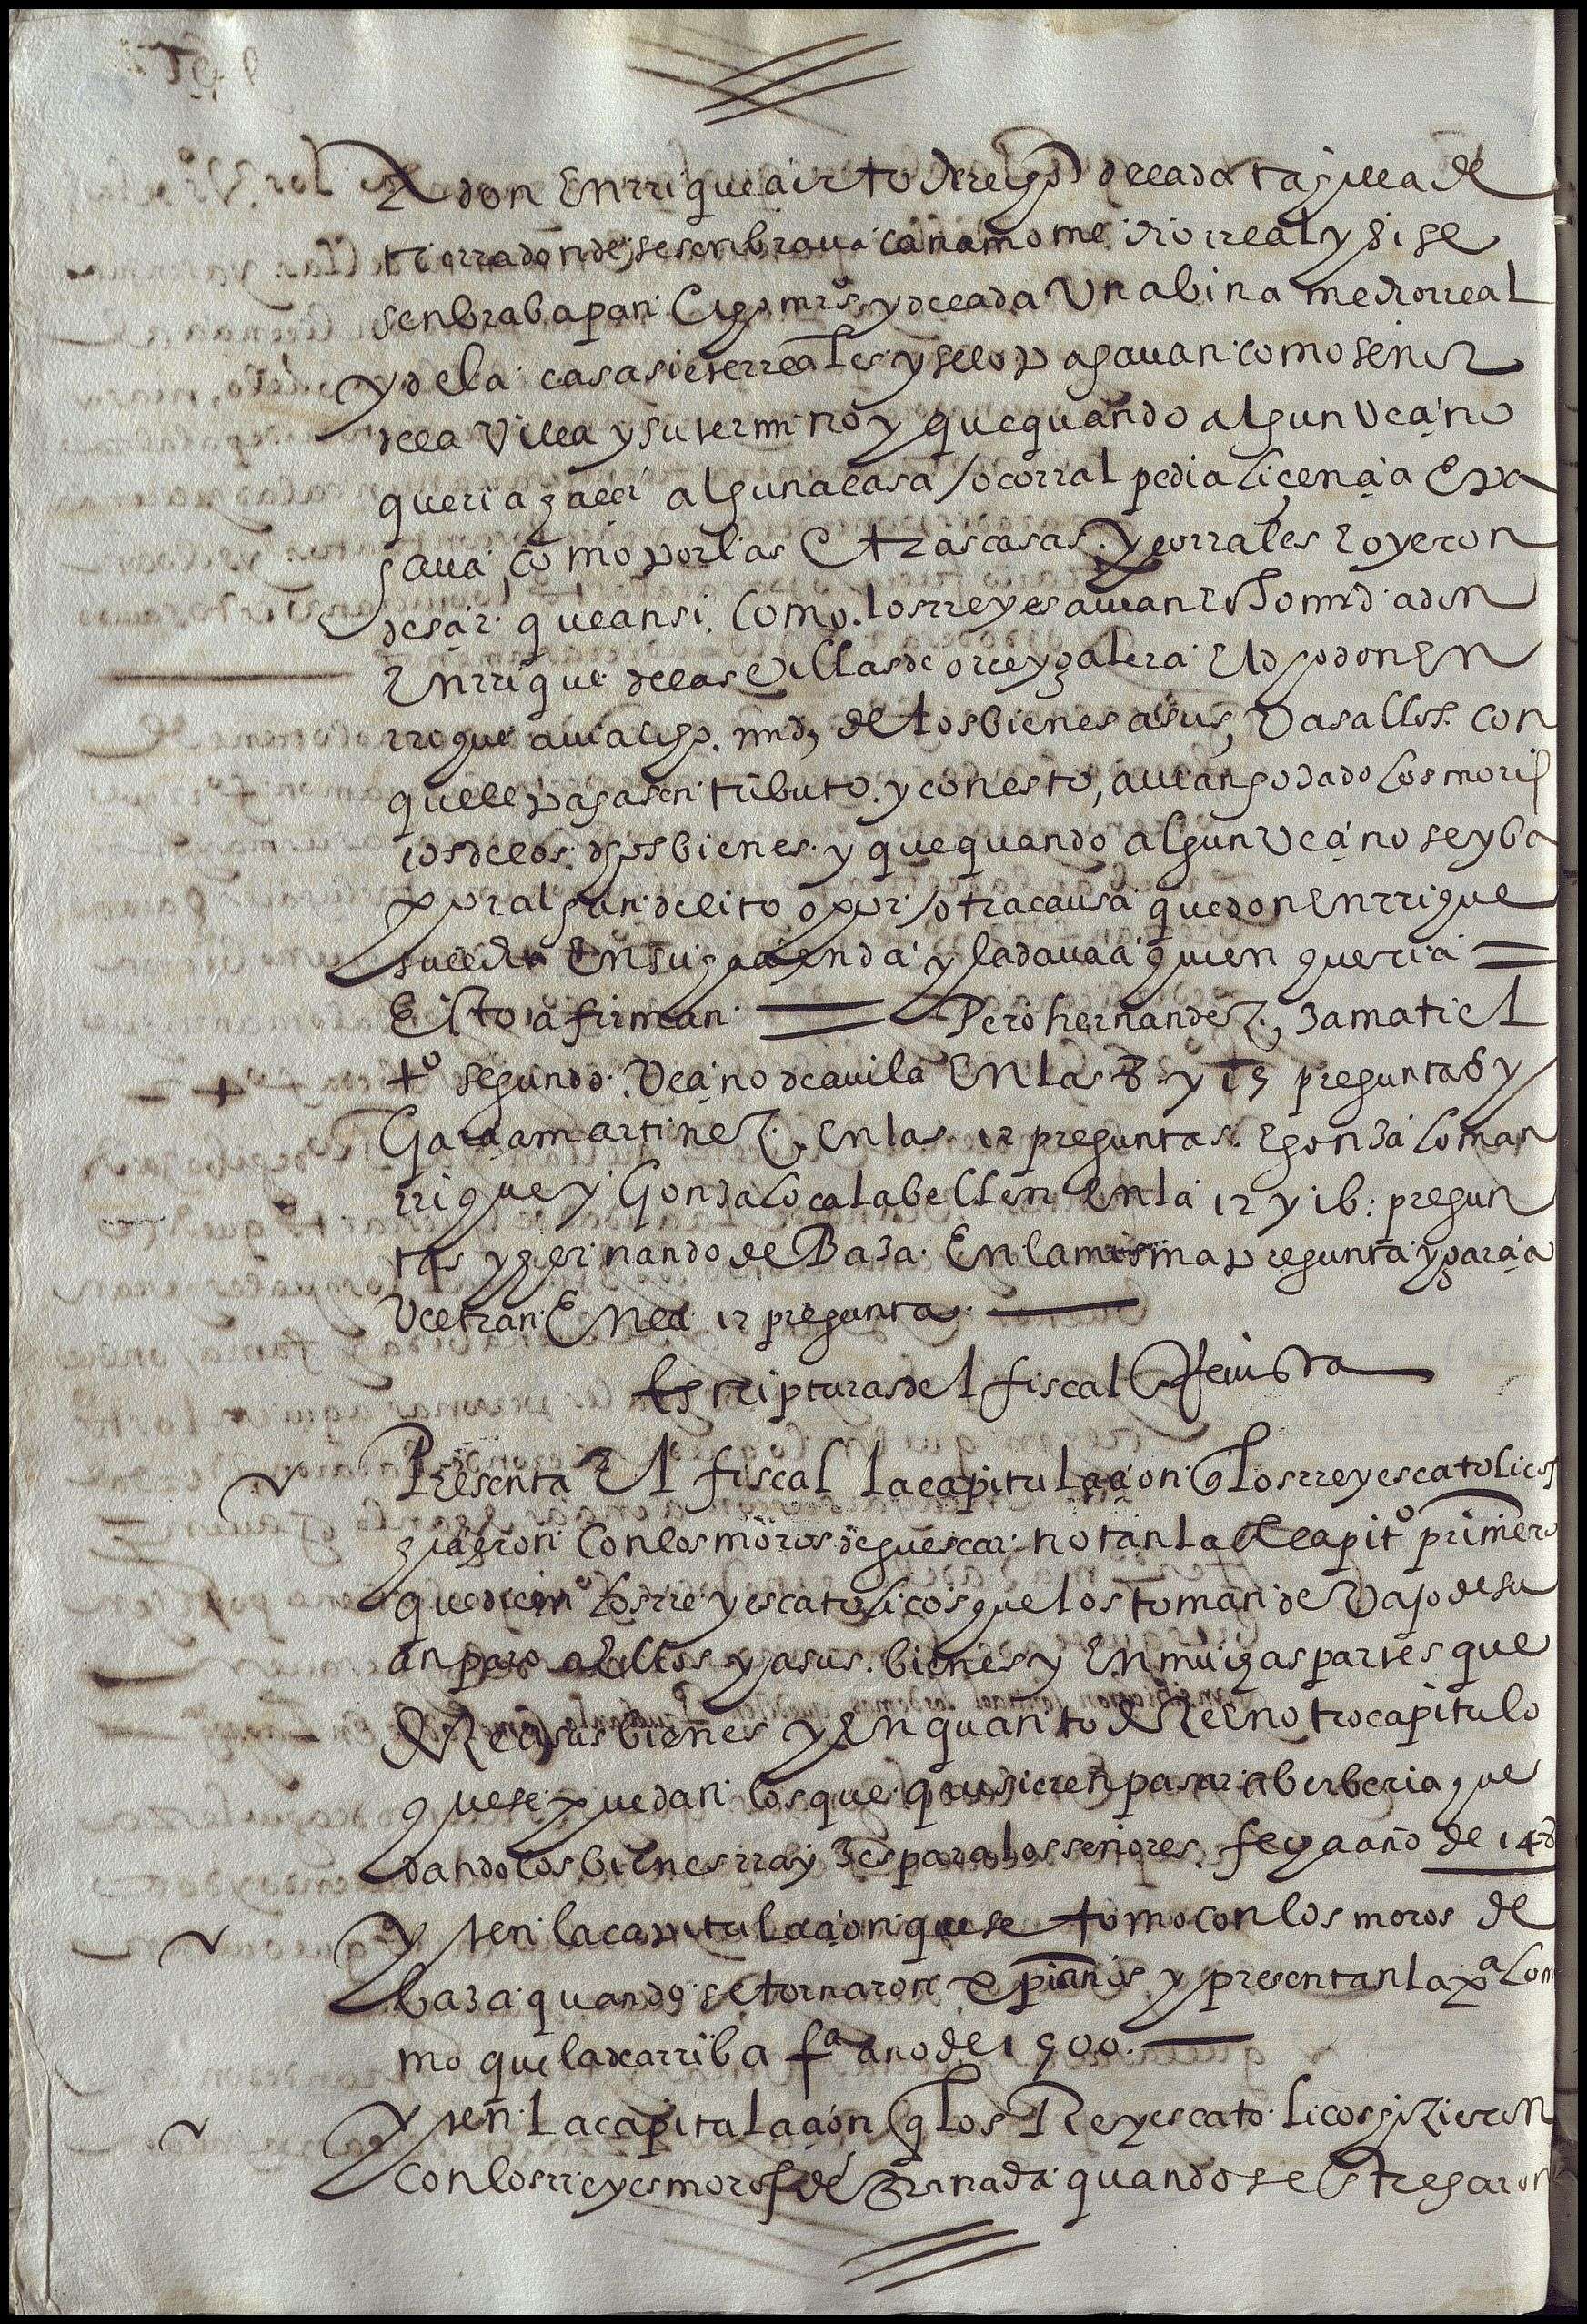 A don Enrrique cierto derecho de cada tagulla de
tierra donde se senbraua cañamo medio rreal y si se
senbraba pan ocho mrs y de cada una bina medio rreal
y de la casa siete rreales y se lo pagauan como señor
de la Villa y su termino y que quando algun vecino
queria hacer alguna casa / o corral pedia licencia E pa
gaua como por las otras casas y corrales E oyeron
decir que ansi como los rreyes auian hecho md a don
Enrrique de las villas de orce y galera El dho don En
rrique auia hecho md de los bienes a sus Vasallos con
que le pagasen tributo y con esto auian gozado los moris
cos de los dhos bienes y que quando algun vecino se yba
por algun delito o por / otra causa que don Enrrique
sucedia En su hacienda y la daua a quien queria =
Esto afirman = Pero hernandez, zamatiel
to segundo Vecino de auila En las 8 y 15 preguntas y
Garcia martinez, en las 12 preguntas E gonzalo man
rrique y Gonzalo calabellin En la 12 y 16: pregun
tas y hernando de Baza En la misma pregunta y garcia
Veetran En la 12 pregunta
Escripturas del fiscal En Reuista
Presenta El fiscal la capitulacion q los rreyes catolicos
hicieron con los moros de guescar notan la del capito primero
que dicen los rreyes catolicos que los toman de vajo de su
anparo a Ellos y a sus bienes y En muchas partes que
dice sus bienes y En quanto dice En otro capitulo
que se puedan los que quisieren pasar a berberia que
dando los bienes rrayzes para los señores fecha año de 148
Yten la capitulacion que se tomo con los moros de
baza quando se tornaron xpianos y presentan la pa lo m
mo que la de arriba fa año de 1500.
Yten la capitulacion q los Reyes catolicos hizieron
con los rreyes moros de Granada quando se Entregaron